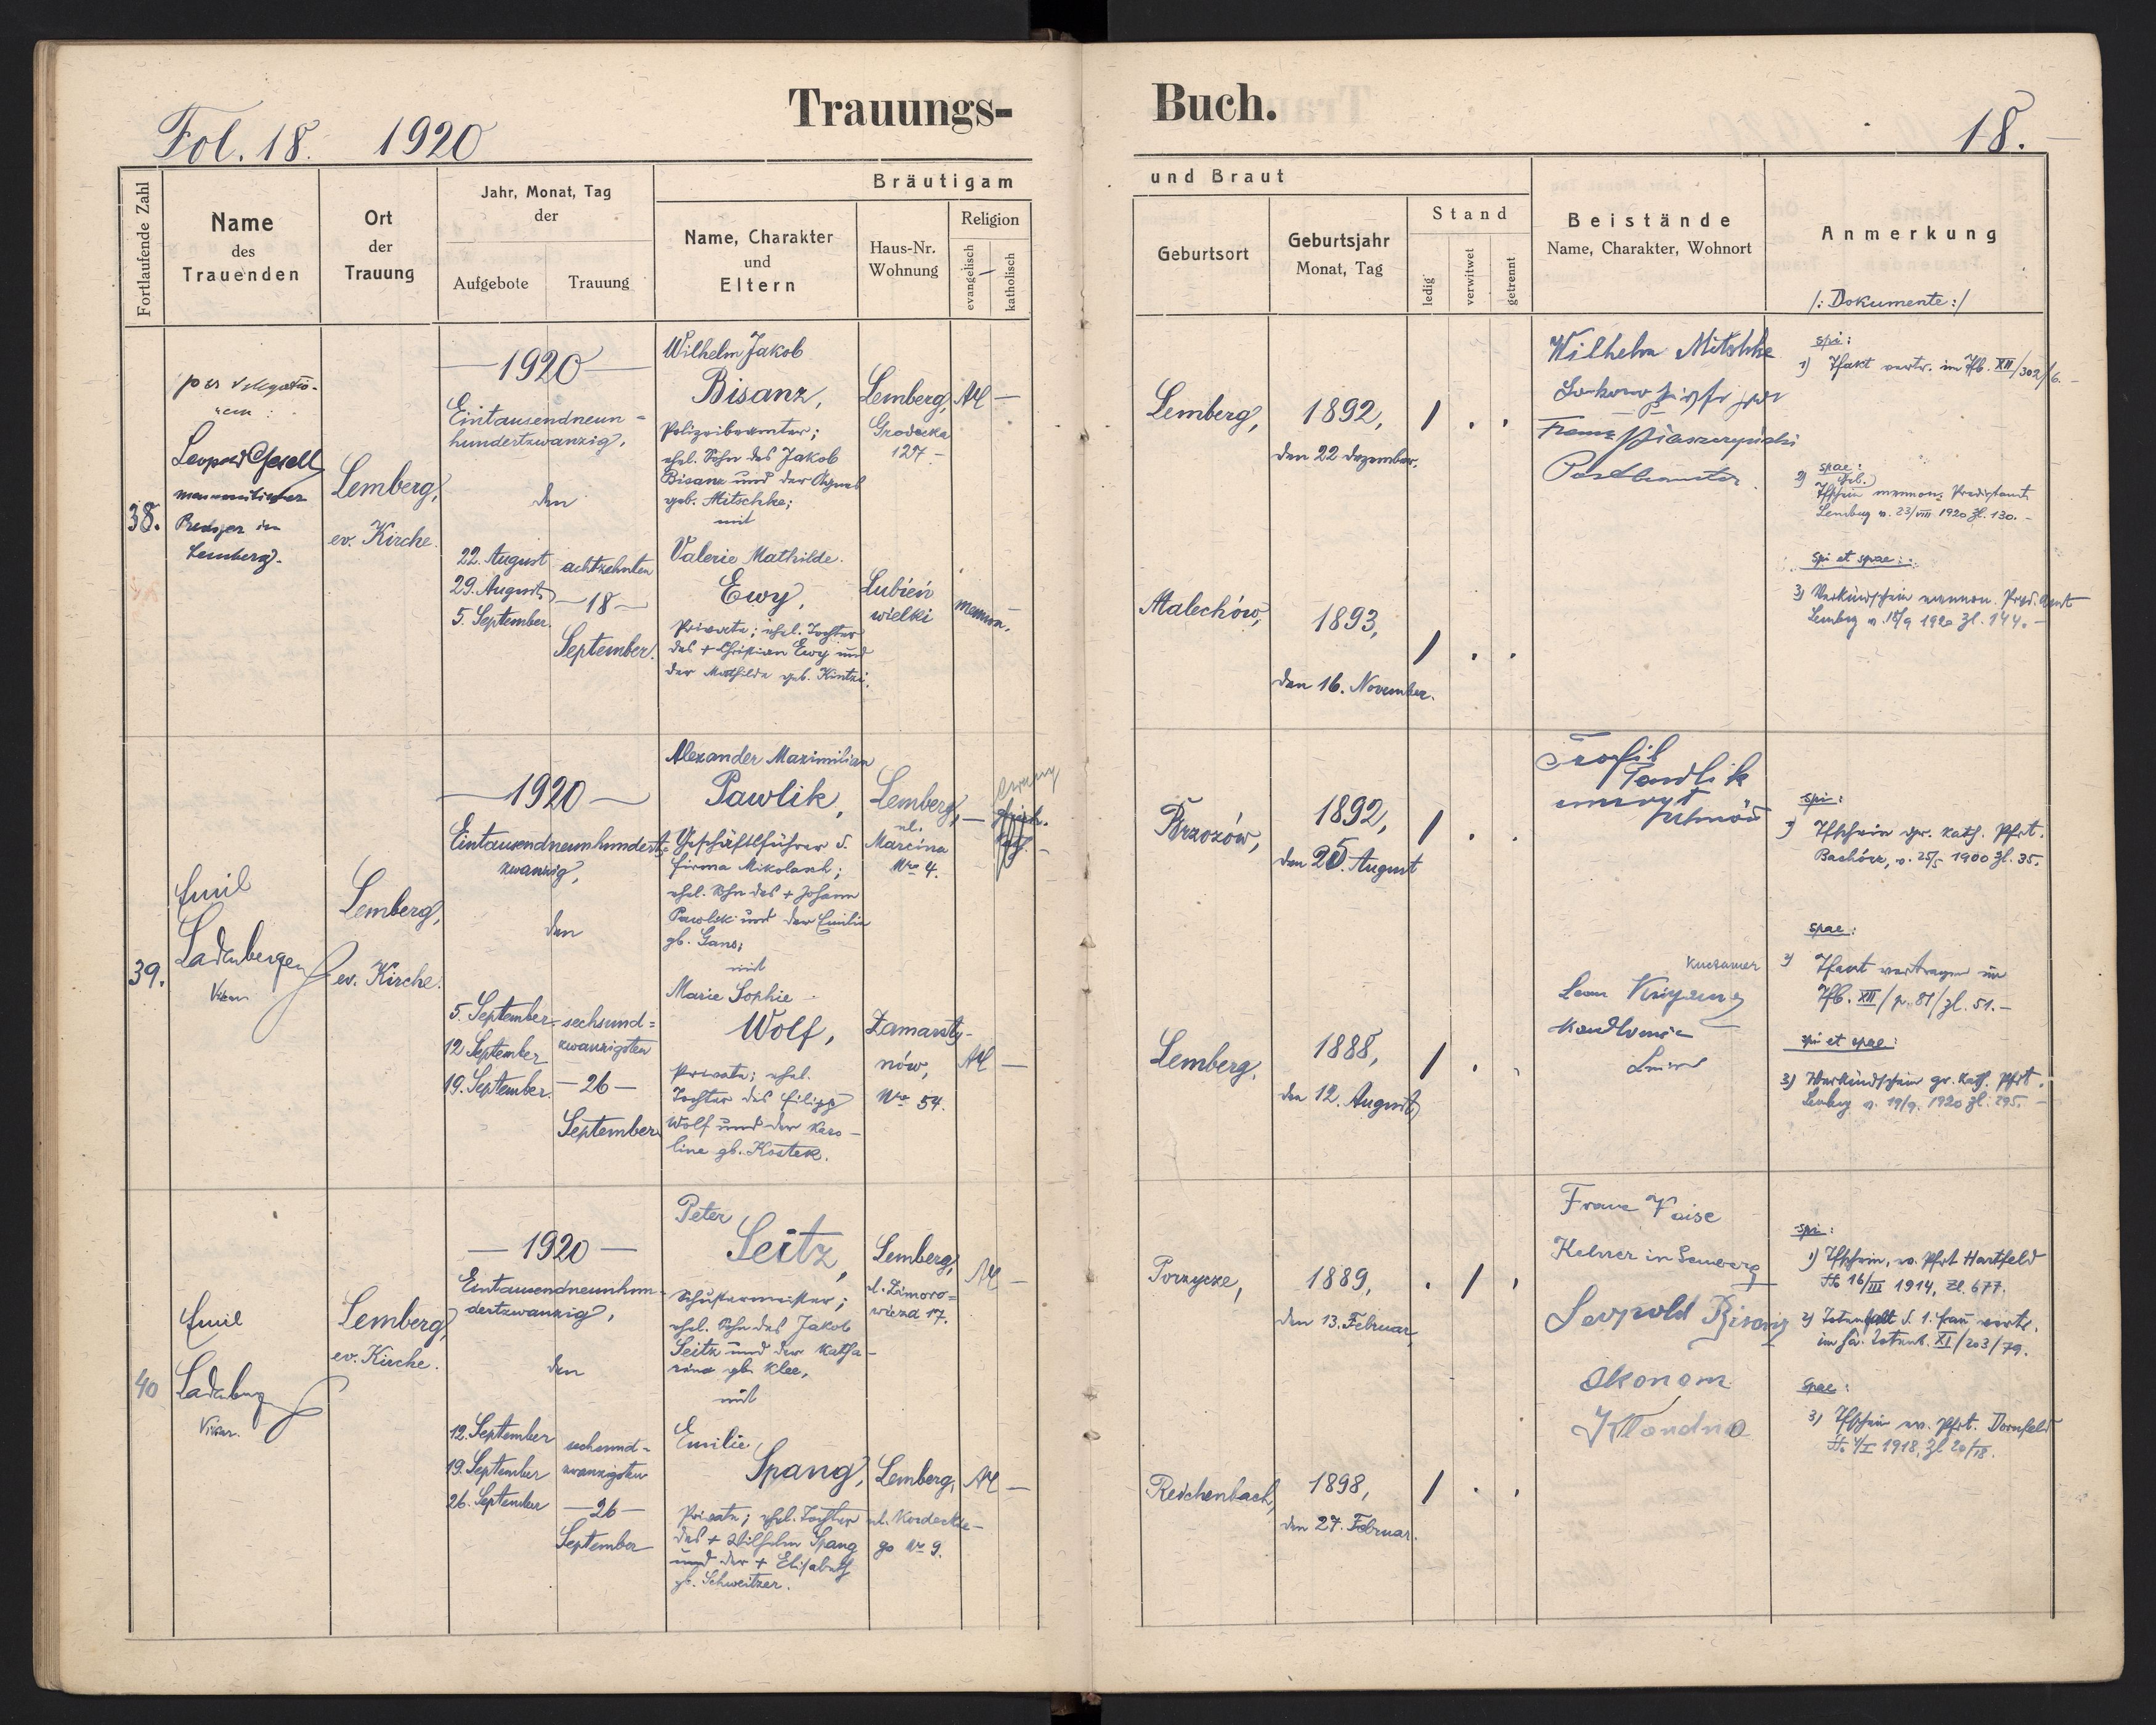 Trauungs-
Buch.
Fol. 18. 1920
18.
Fortlaufende Zahl
Name
des
Trauenden
Ort
der
Trauung
Jahr, Monat, Tag
der
Aufgebote
Trauung
Bräutigam
Name, Charakter
und
Eltern
Haus-Nr.
Wohnung
Religion
evangelisch
katholisch
und Braut
Geburtsort
Geburtsjahr
Monat, Tag
Stand
ledig
verwitwet
getrennt
Beistände
Name, Charakter, Wohnort
Anmerkung
/: Dokumente :/
38.
Leopold Gesell
Lemberg.
Lemberg,
ev. Kirche.
—1920—
Eintausendneun=
hundertzwanzig,
den
22. August
29. August
5. September.
achtzehnten
—18—
September.
Wilhelm Jakob
Bisanz,
Polizeibeamter;
ehel. Sohn des Jakob
Bisanz und der Agnes
geb. Mitschke;
mit
Valerie Mathilde.
Ewy,
Private; ehel. Tochter
des + Christian Ewy und
der Mathilde geb. Kintzi.
Lemberg,
Grodecka
127.-
AC —
Lubień
wielki
mennon.
Lemberg,
1892,
den 22 Dezember.
Malechów,
1893,
den 16. November.
Wilhelm Mitschke
Postbeamter.
spi:
1) Tfakt vertr. im Tfb. XII/302/6.-
spae:
2) Tfschein mennon. Predigtamt.
Lemberg v. 23/VIII 1920 Zl. 130.-
spi et spae:
3) Verkündschein mennon. Pred. Amt
Lemberg v. 18/9 1920 Zl. 144.-
39.
Emil
Ladenberger
Vikar
Lemberg,
ev. Kirche.
—1920—
Eintausendneunhundert=
zwanzig,
den
5. September
12. September
19. September.
sechsund=
zwanzigsten
—26—
September
Alexander Maximilian
Pawlik,
Geschäftsführer d.
Firma Mikolasch;
ehel. Sohn des + Johann
Pawlik und der Emilie
gb. Gans;
mit
Marie Sophie
Wolf,
Private; ehel.
Tochter des Filipp
Wolf und der Karo-
line gb. Kostek.
Lemberg,
ul.
Marcina
Nro 4.
Zamarsty-
nów,
Nro 54.
AC —
Brzozów,
1892,
den 25. August
Lemberg.
1888,
den 12. August
spi:
1) Tfschein gr. kath. Pfrt.
Bachórz, v. 25/5 1900 Zl. 35.
spae:
2) Tfact vertragen im
Tfb. XII/p. 81/Zl. 51.-
spi et spae:
3) Verkündschein gr. kath. Pfrt.
Lemberg v. 19/9. 1920 Zl. 295.-
40
Emil
Ladenberger
Vikar.
Lemberg,
ev. Kirche.
—1920—
Eintausendneunhun-
dertzwanzig,
den
12. September
19. September
26. September
sechsund-
zwanzigsten
—26—
September
Peter
Seitz,
Schustermeister;
ehel. Sohn des Jakob
Seitz und der Katha-
rina gb. Klee,
mit
Emilie
Spang,
Private; ehel. Tochter
des + Wilhelm Spang
und der + Elisabeth
gb. Schweitzer.
Lemberg,
ul. Zimoro=
wicza 17.
AC —
Lemberg,
ul. Kordeckie-
go Nr 9.
AC —
Porzycze,
1889,
den 13. Februar
Reichenbach,
1898,
den 27. Februar.
Franz Kaise
Kelner in Lemberg
Leopold Bisanz
Ökonom
spi:
1) Tfschein, ev. Pfrt Hartfeld
dto 16/III 1914, Zl. 677.
2) Totenfall d. 1. Frau vertr.
im ha. Totenb. XI/203/79.
spae:
3) Tfschein ev. Pfrt. Dornfeld
dto 4/I 1918, Zl 20/18.